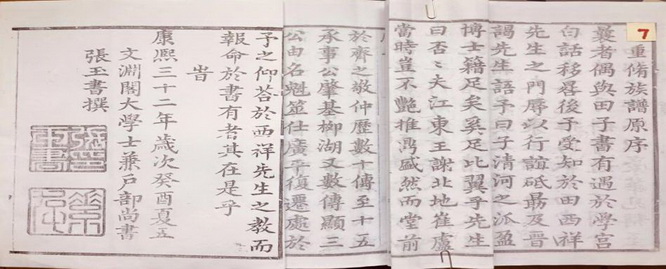 7
重脩族譜原序
曩者偶與田子書有過於學宮
白話移晷後予受知於田西祥
先生之門辱以行誼砥勗及晋
謁先生語予曰子清河之派盈
博士籍足矣奚足比翼乎先生
曰否〻夫江東王謝北地崔盧
當時豈不艷推鴻盛然而堂前
於齊之敬仲歷數十傳至十五
承事公肇基柳湖又數傳顯三
公由名魁筮仕廣平復遷處於
予之仰荅於西祥先生之教而
報命於書有者其在是乎
旹
康熙三十二年歲次癸酉夏五
文淵閣大學士兼戶部尚書
張玉書撰